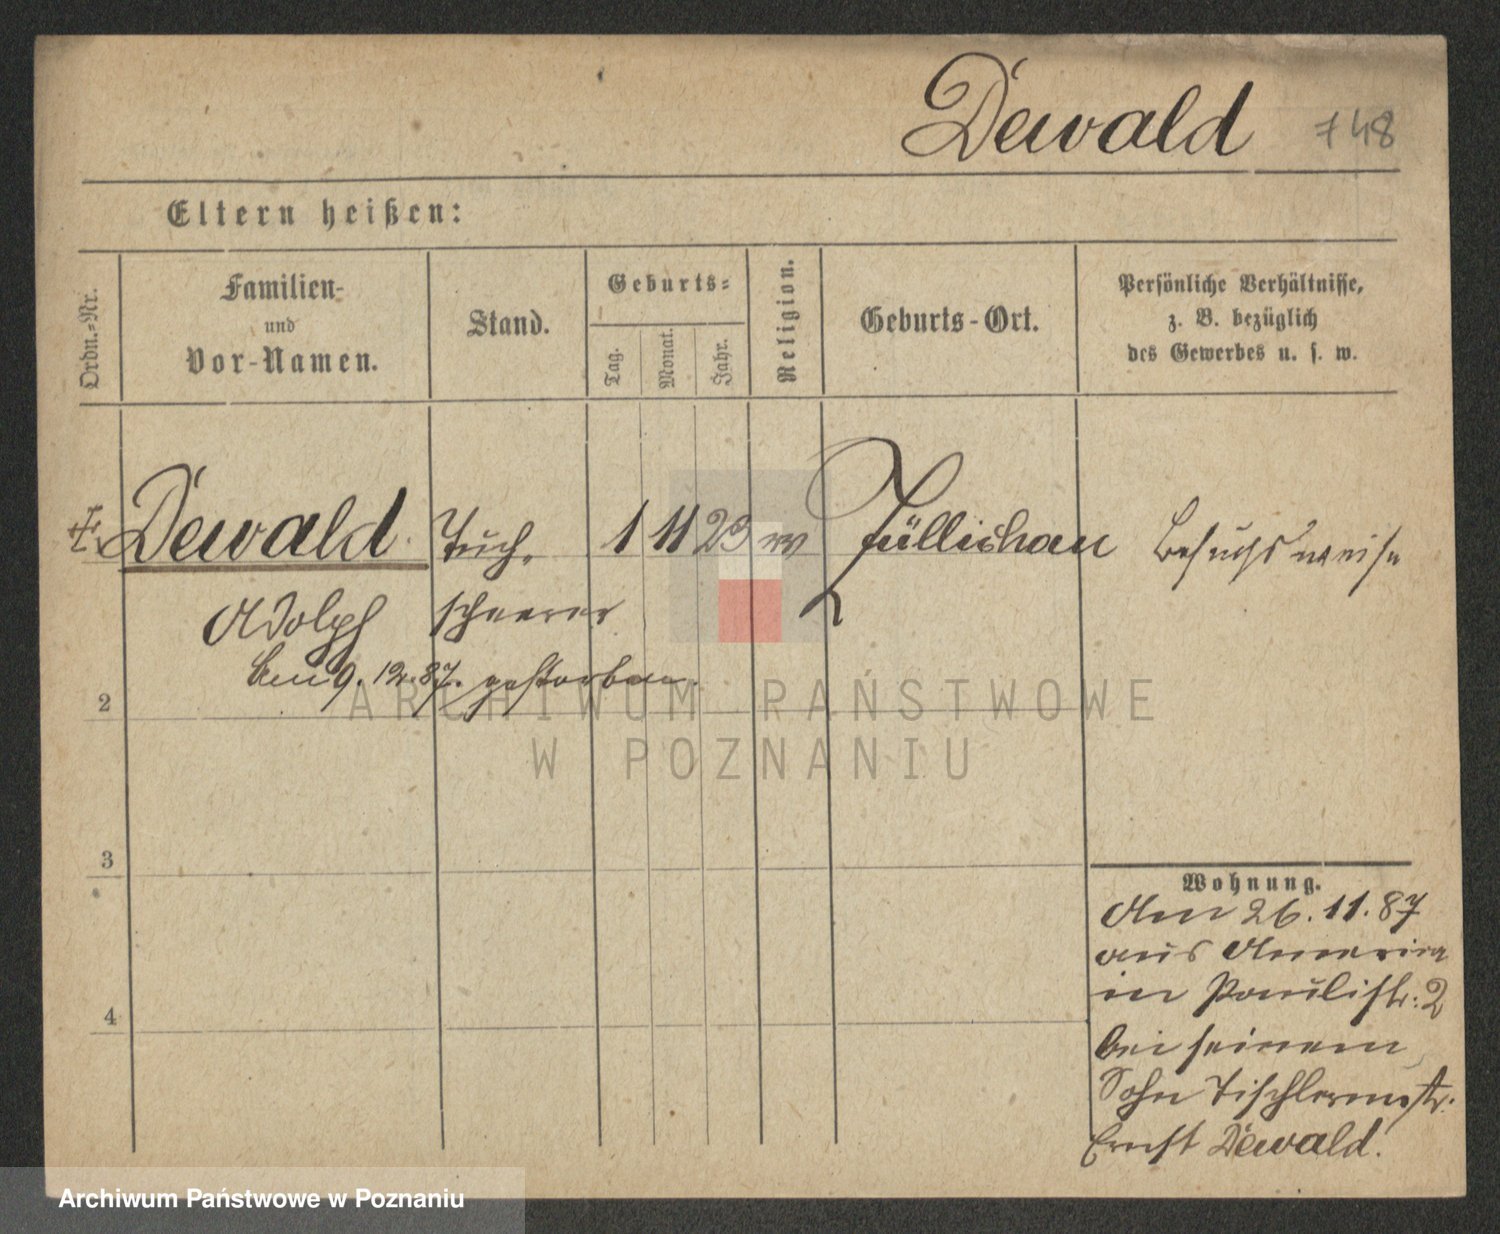 Dewald 748
Eltern heißen:
Ordn.=Nr.
Familien-
und
Vor-Namen.
Stand.
Geburts=
Tag.
Monat.
Jahr.
Religion.
Geburts-Ort.
Persönliche Verhältnisse,
z. B. bezüglich
des Gewerbes u. s. w.
Dewald. Tuch- 1 11 23 ev Züllichau Besuchsweise
Adolph scheerer
Am 9. 12. 87. gestorben.
2
3
4
Wohnung.
Am 26. 11. 87
aus Amerika
in Paulistr. 2
bei seinem
Sohn Tischlermstr.
Ernst Dewald.
ARCHIWUM PAŃSTWOWE
W POZNANIU
Archiwum Państwowe w Poznaniu